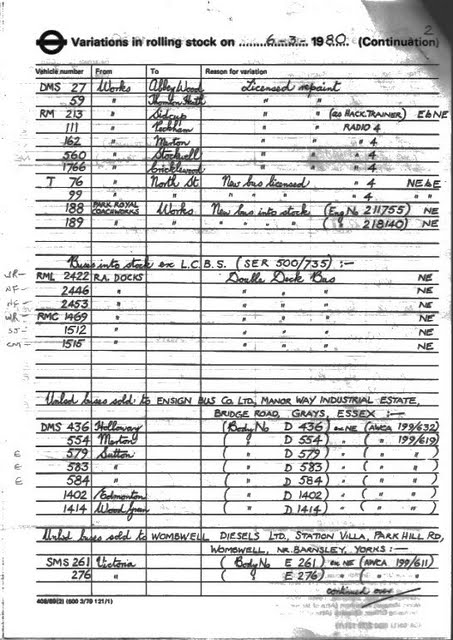 2
Variations in rolling stock on 6-3-1980 (Continuation)
Vehicle number From To Reason for variation
DMS 27 Works Abbey Wood Licensed repaint
59 " Thornton Heath " "
RM 213 " Sidcup " " (as HACK.TRAINER) E6NE
111 " Peckham RADIO 4
162 " Merton " 4
560 " Stockwell " 4
1766 " Cricklewood " 4
T 76 " North St New bus licensed " 4 NE6E
99 " " " " " " 4
188 PARK ROYAL COACHWORKS Works New bus into stock (Eng No 211755) NE
189 " " " " " " ( " 218140) NE
Buses into stock ex L.C.B.S. (SER 500/735) :-
RML 2422 R.A. DOCKS Double Deck Bus NE
NF- 2446 " " " " NE
NF- 2453 " " " " NE
WR- RMC 1469 " " " " NE
SJ- 1512 " " " " NE
CM- 1515 " " " " NE
Unlsd buses sold to ENSIGN BUS Co. LTD, MANOR WAY INDUSTRIAL ESTATE,
BRIDGE ROAD, GRAYS, ESSEX :-
DMS 436 Holloway (Body No D 436) ex NE (AWCA 199/632)
554 Merton ( " D 554) " ( " 199/619)
E 579 Sutton ( " D 579) " ( " " )
E 583 " ( " D 583) " ( " " )
E 584 " ( " D 584) " ( " " )
1402 Edmonton ( " D 1402) " ( " " )
1414 Wood Green ( " D 1414) " ( " " )
Unlsd buses sold to WOMBWELL DIESELS LTD., STATION VILLA, PARK HILL RD,
WOMBWELL, NR. BARNSLEY, YORKS :-
SMS 261 Victoria (Body No E 261) ex NE (AWCA 199/611)
276 " ( " E 276) " ( " " )
continued over